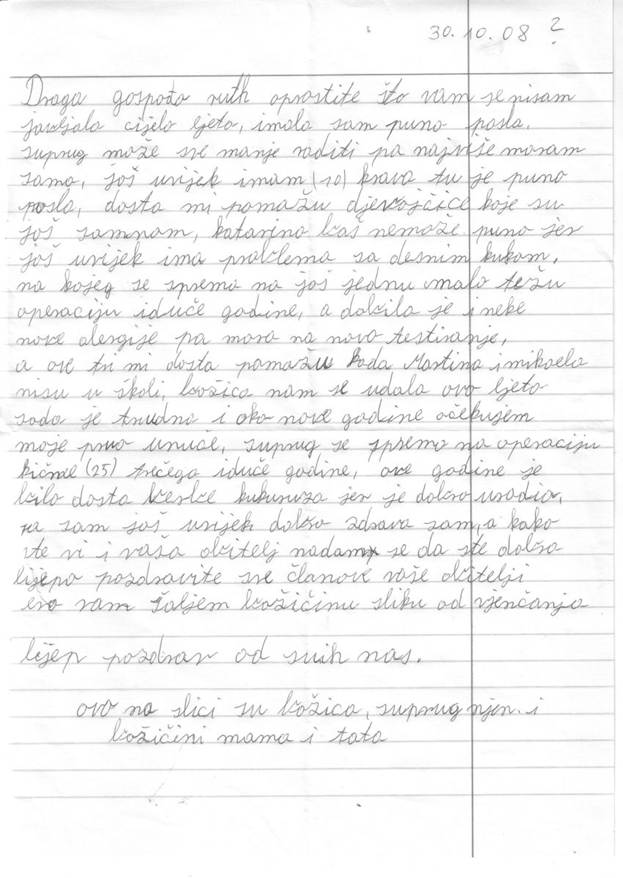 30.10.08 ?
Draga gospođo ruth oprostite što vam se nisam
javljala cijelo ljeto, imala sam puno posla.
suprug može sve manje raditi pa najviše moram
sama, još uvijek imam (10) krava tu je puno
posla, dosta mi pomažu djevojčice koje su
još samnom, katarina baš nemože puno jer
još uvijek ima problema sa desnim kukom,
na kojeg se sprema na još jednu malo težu
operaciju iduće godine, a dobila je i neke
nove alergije pa mora na novo testiranje,
a ove tu mi dosta pomažu kada Martina i mikaela
nisu u školi, božica nam se udala ovo ljeto
sada je trudna i oko nove godine očekujem
moje prvo unuče, suprug se sprema na operaciju
kičme (25) trećega iduće godine, ove godine je
bilo dosta berbe kukuruza jer je dobro urodio,
ja sam još uvijek dobro zdrava sam, a kako
ste vi i vaša obitelj nadam se da ste dobro
lijepo pozdravite sve članove vaše obitelji
evo vam šaljem božičinu sliku od vjenčanja
lijep pozdrav od svih nas.
ovo na slici su božica, suprug njen i
božičini mama i tata